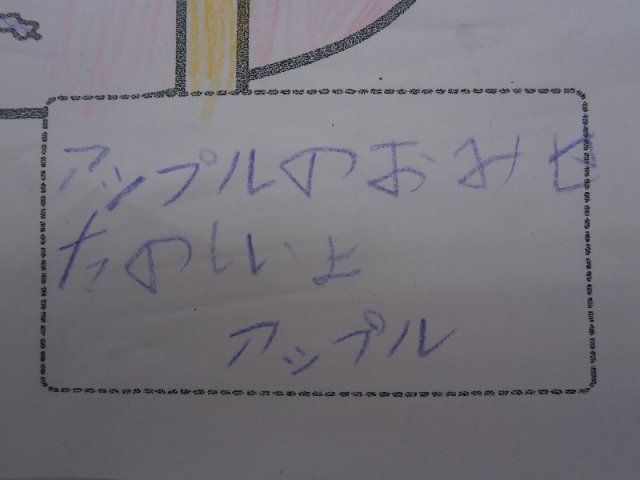 アップルのおみせ
たのしいよ
アップル